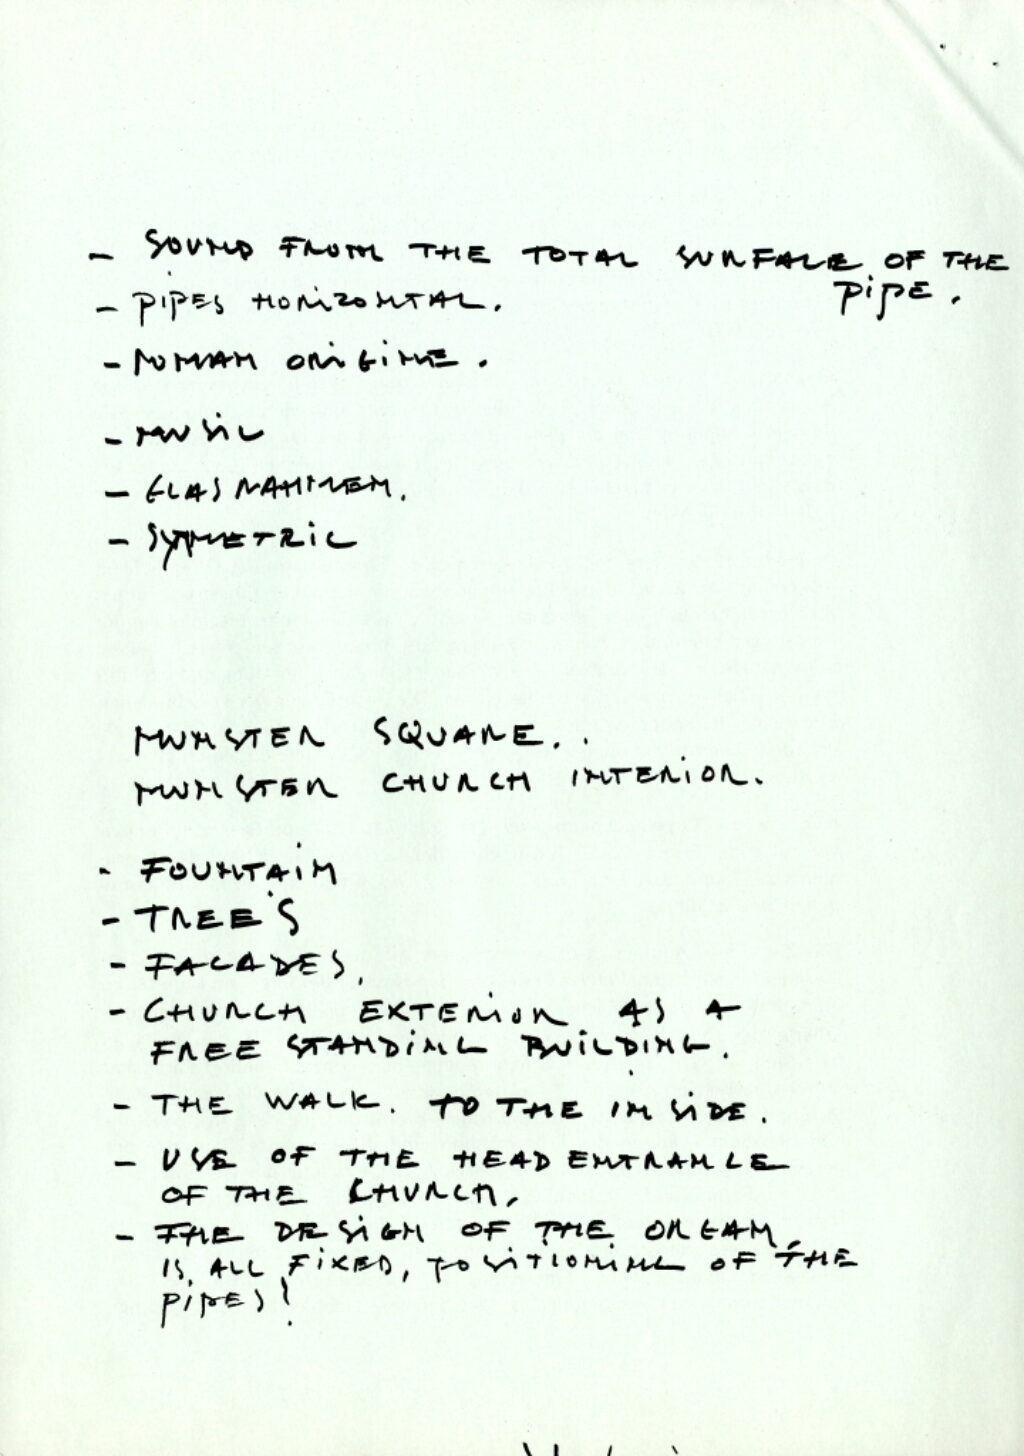 - SOUND FROM THE TOTAL SURFACE OF THE
PIPE.
- PIPES HORIZONTAL.
- ROMAN ORIGINE.
- MUSIC
- GLAS RAHMEN.
- SYMETRIC
MUNSTER SQUARE..
MUNSTER CHURCH INTERIOR.
- FOUNTAIN
- TREE'S
- FACADES.
- CHURCH EXTERIOR AS A
FREE STANDING BUILDING.
- THE WALK. TO THE INSIDE.
- USE OF THE HEAD ENTRANCE
OF THE CHURCH.
- THE DESIGN OF THE ORGAN,
IS ALL FIXED, POSITIONING OF THE
PIPES!